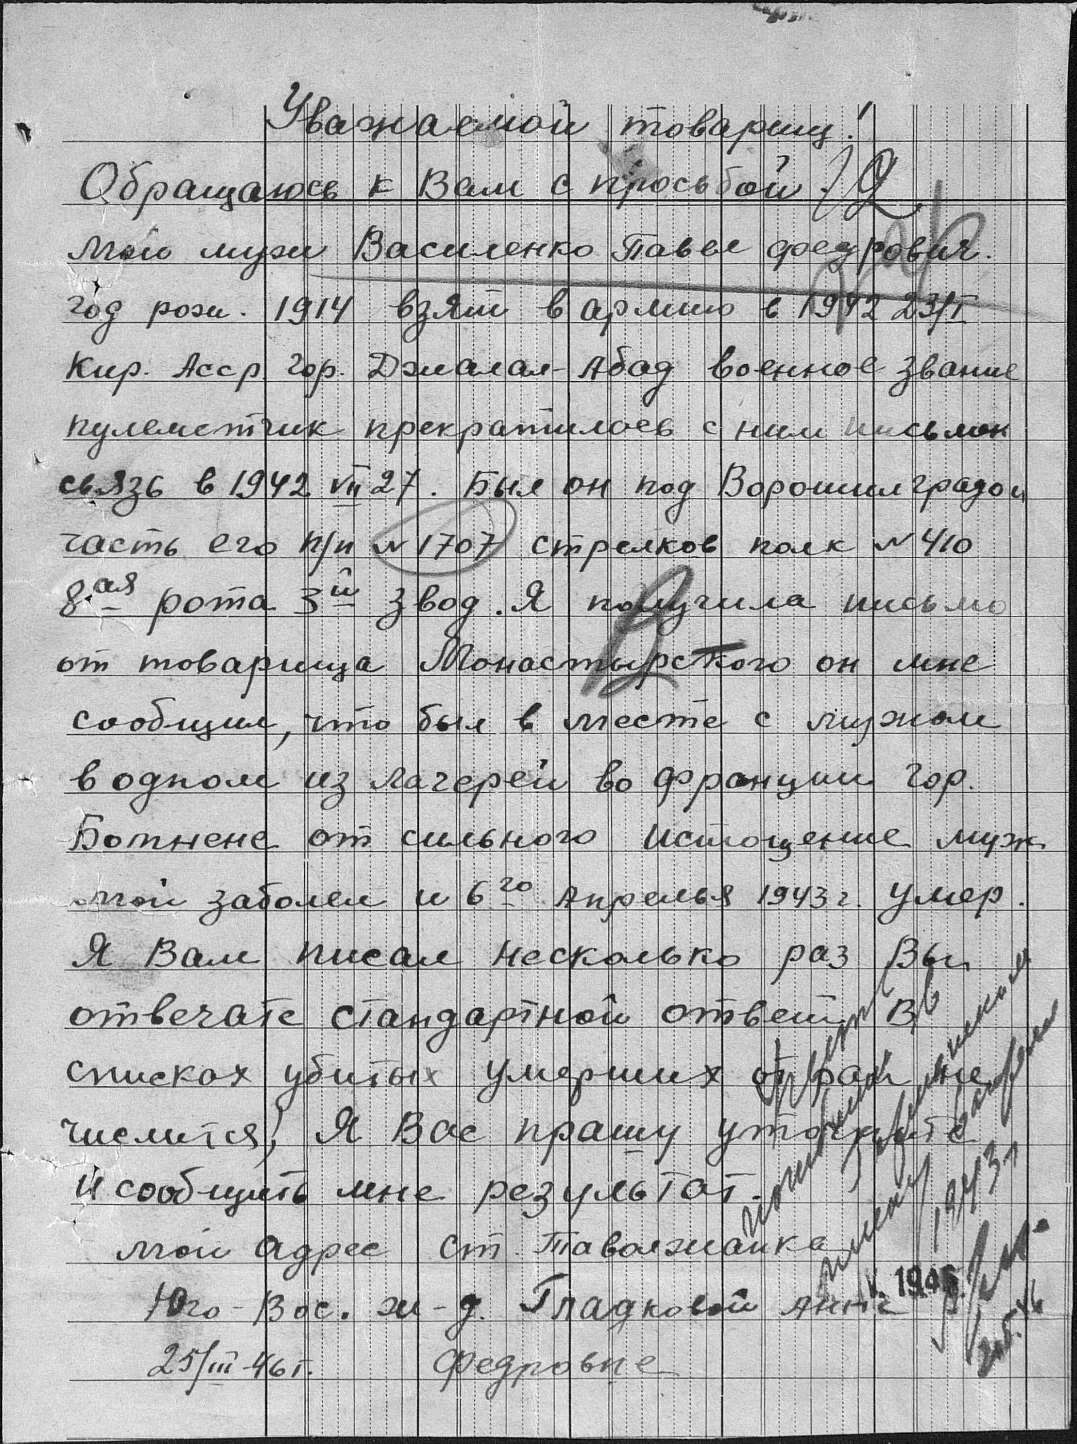 Уважаемой товарищ!
Обращаюсь к Вам с просьбой.
Мой муж Василенко Павел Федрович.
год рож. 1914 взят в армию в 1942 23/I
Кир. Асср гор. Джалал-Абад военное звание
пулеметчик прекратилоев с ним письмен
сьвязь в 1942 VII 27. Был он под Ворошилградом
часть его п/п №1707 стрелков полк №410
8.ая рота 3й звод. Я получила письмо
от товарища Монастырского он мне
сообщил, что был в месте с мужом
в одном из лагерей во Франции гор.
Ботнене от сильного истощение муж
мой заболел и 6го Апрелья 1943 г. умер.
Я Вам писал несколько раз Вы
отвечате стандартной ответ, В
списках убитых умерших от ран не
числится, Я Вас прашу уточните
и сообщить мне результат.
Мой адрес ст. Таволжанка
Юго-Вос. ж-д. Гладковой Анне
25/III-46 г. Федровне
1943 г.